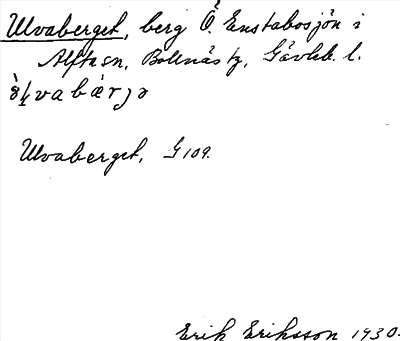 Ulvaberget, berg Ö. Enstabosjön i
Alfta sn, Bollnäs tg, Gävleb. l.
Ulvaberget, G 109.
Erik Eriksson 1930.